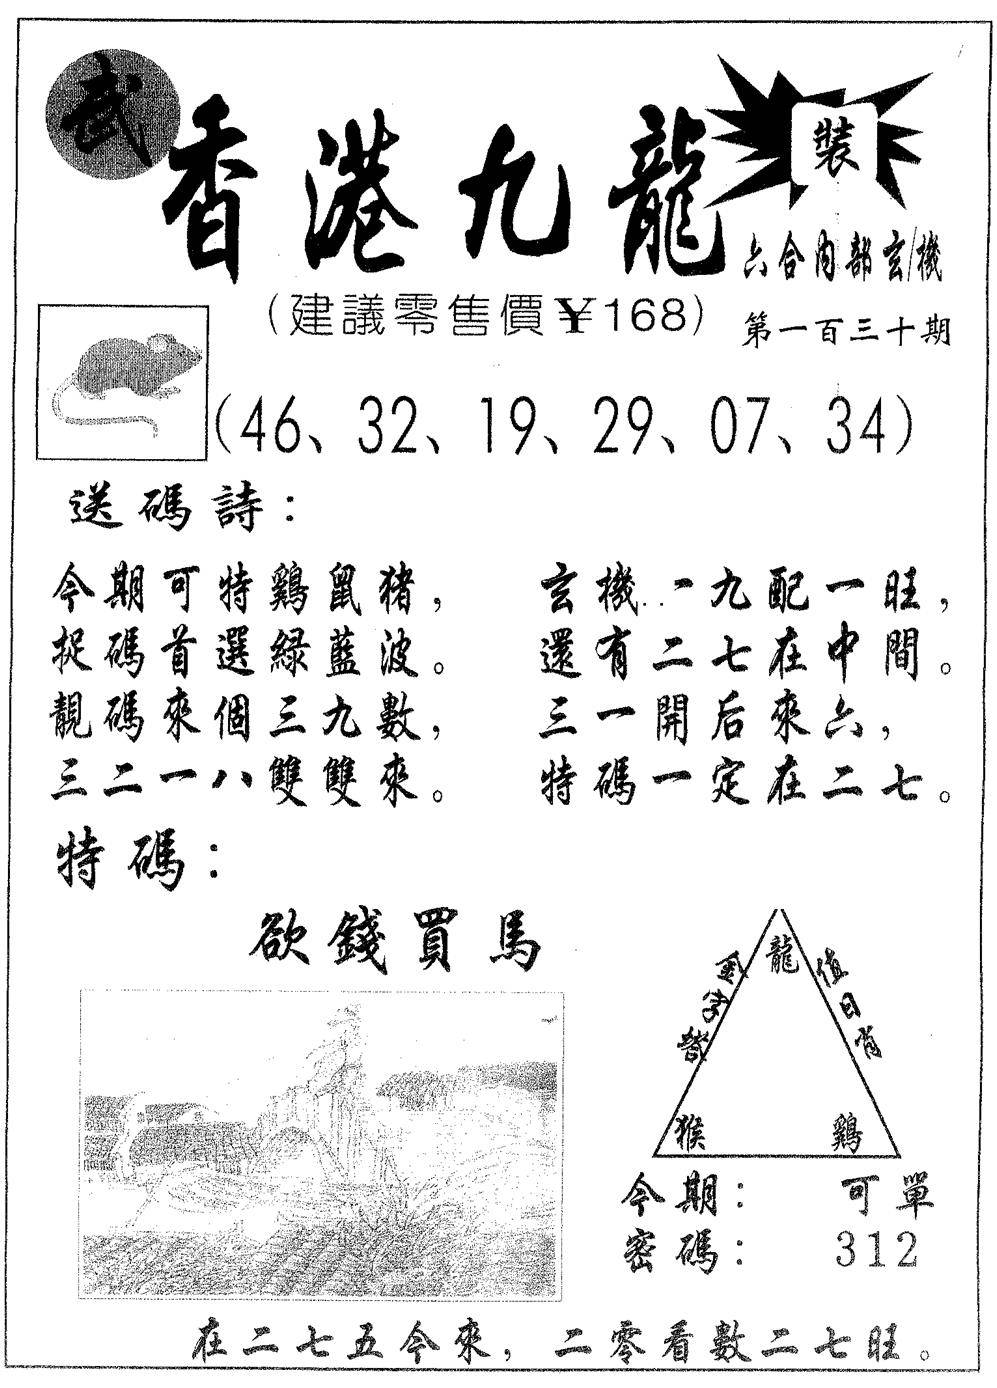 武
香港九龍
裝
六合内部玄機
(建議零售價¥168)
第一百三十期
(46、32、19、29、07、34)
送碼詩：
今期可特鷄鼠猪，
捉碼首選緑藍波。
靚碼來個三九數，
三二一八雙雙來。
玄機一九配一旺，
還有二七在中間。
三一開后來六，
特碼一定在二七。
特碼：
欲錢買馬
龍
值日肖
猴
鷄
今期： 可單
密碼： 312
在二七五今來，二零看數二七旺。